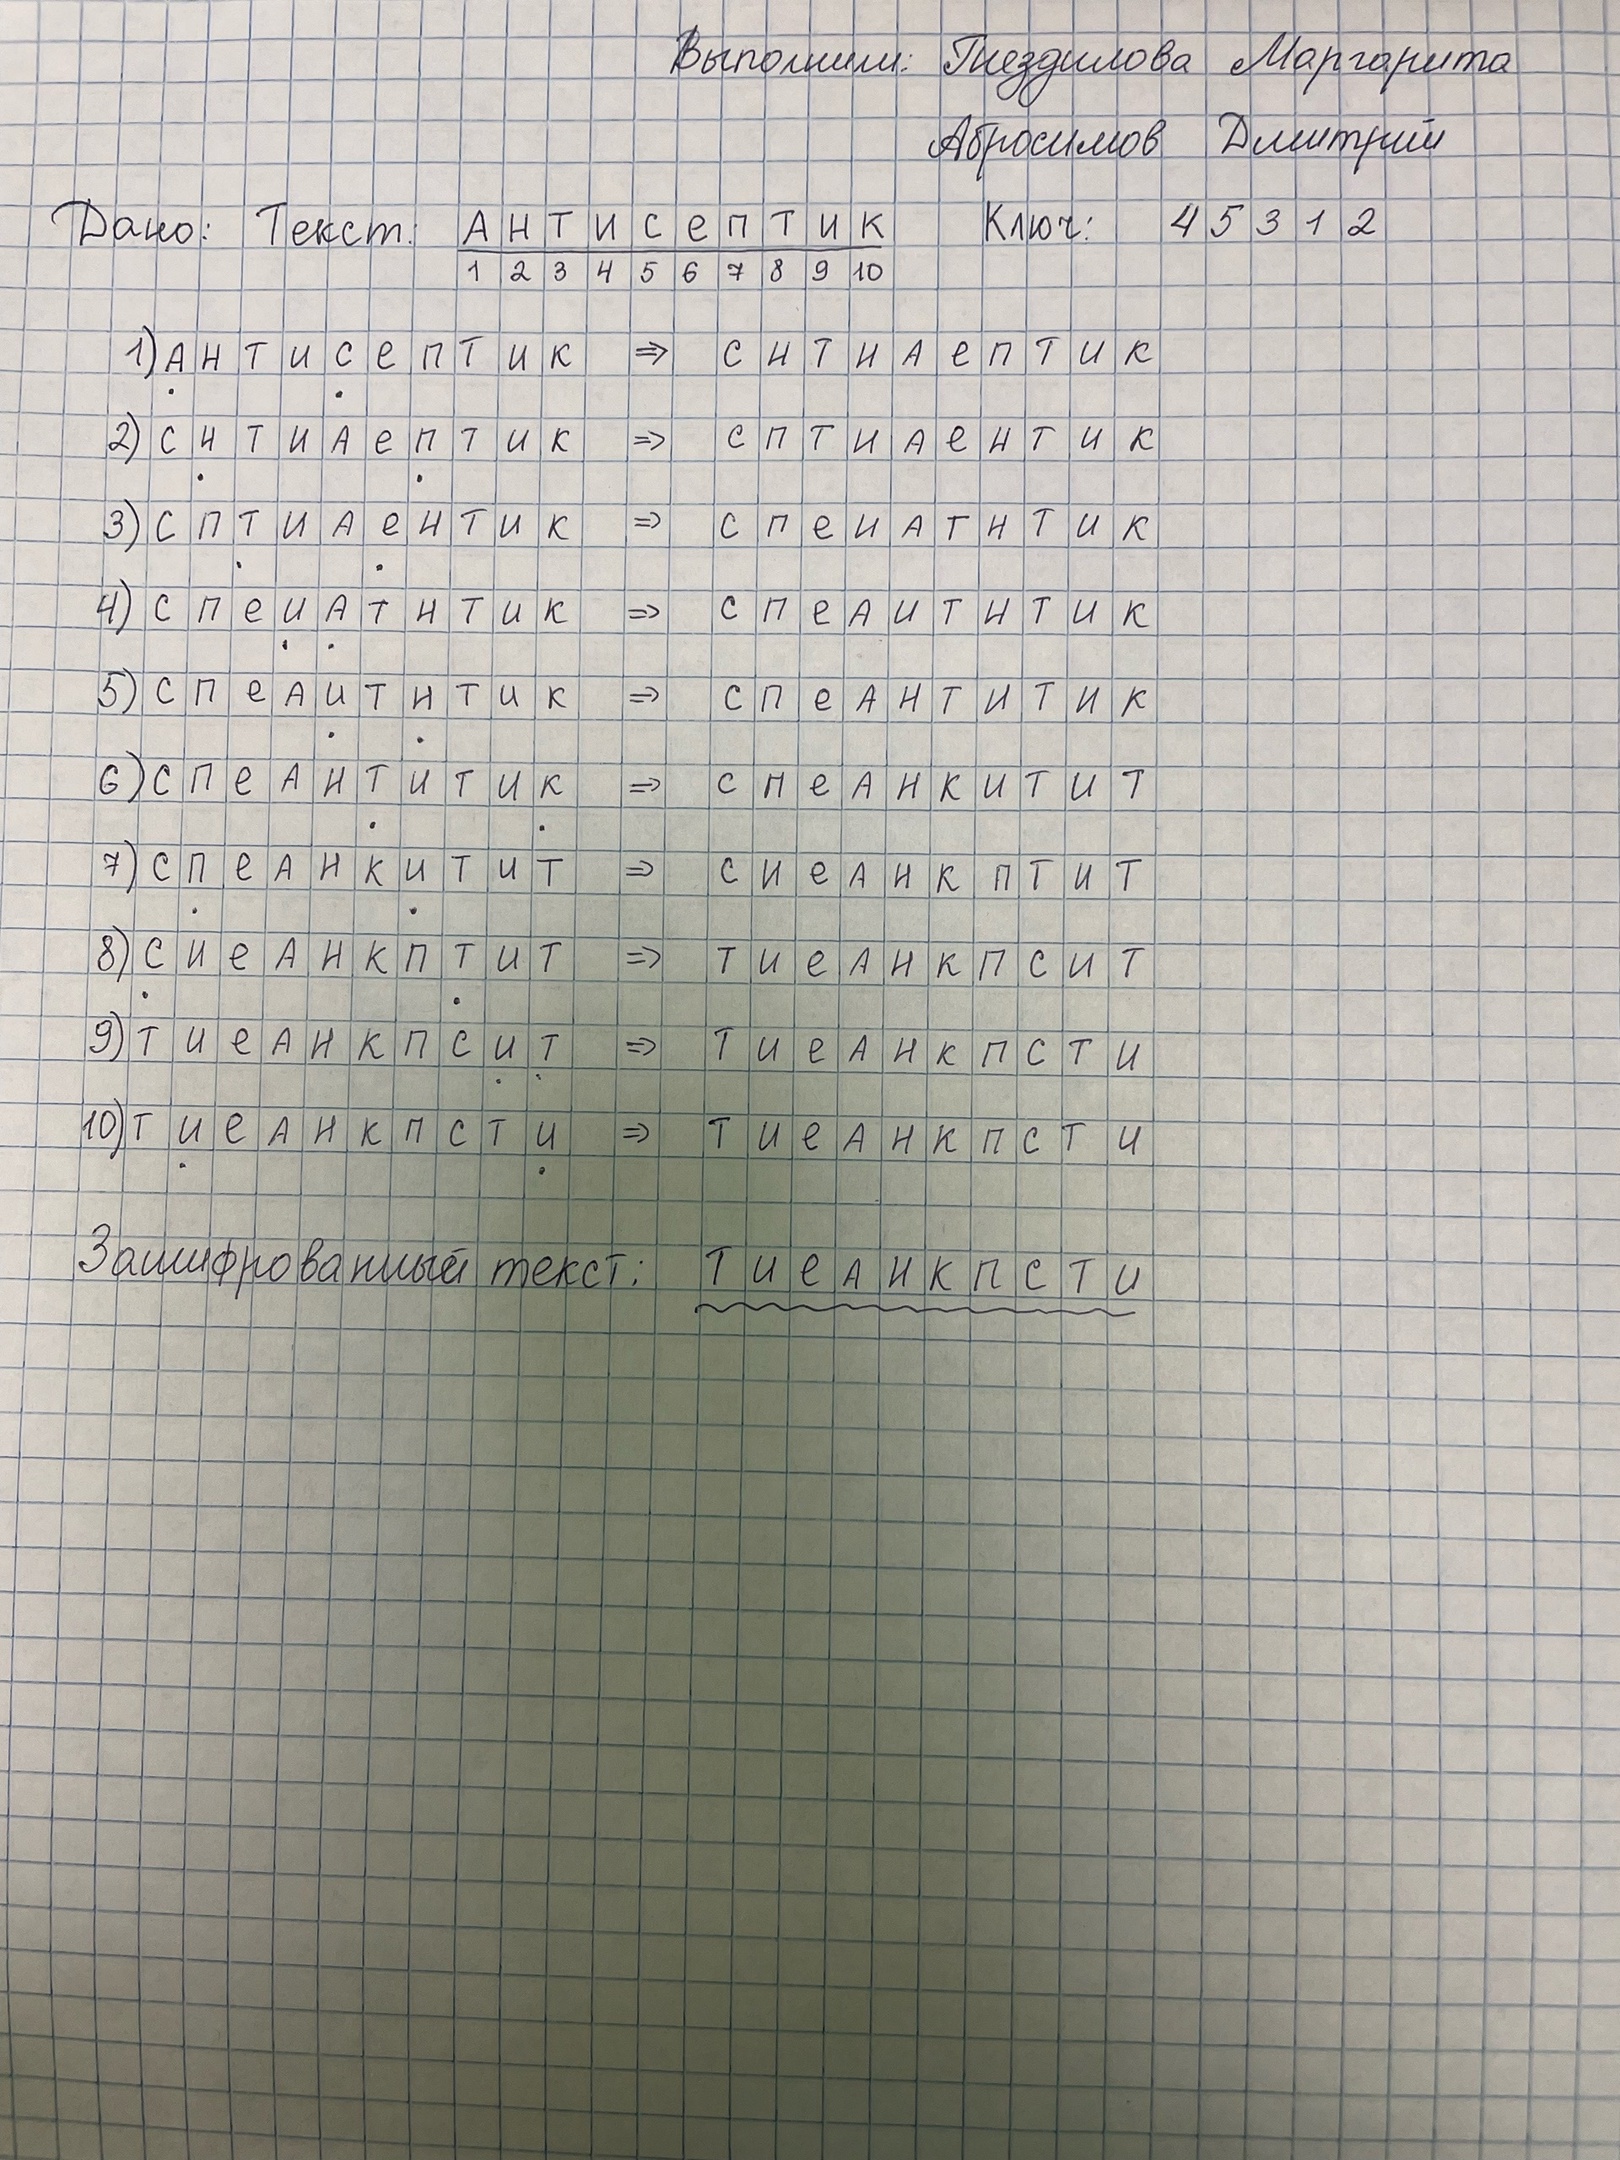 Выполнили: Гнездилова Маргарита
Абросимов Дмитрий
Дано: Текст: А Н Т И С е П Т И К Ключ: 4 5 3 1 2
1 2 3 4 5 6 7 8 9 10
1) А Н Т И С е П Т И К ⇒ С Н Т И А е П Т И К
2) С Н Т И А е П Т И К ⇒ С П Т И А е Н Т И К
3) С П Т И А е Н Т И К ⇒ С П е И А Т Н Т И К
4) С П е И А Т Н Т И К ⇒ С П е А И Т Н Т И К
5) С П е А И Т Н Т И К ⇒ С П е А Н Т И Т И К
6) С П е А Н Т И Т И К ⇒ С П е А Н К И Т И Т
7) С П е А Н К И Т И Т ⇒ С И е А Н К П Т И Т
8) С И е А Н К П Т И Т ⇒ Т И е А Н К П С И Т
9) Т И е А Н К П С И Т ⇒ Т И е А Н К П С Т И
10) Т И е А Н К П С Т И ⇒ Т И е А Н К П С Т И
Зашифрованный текст: Т И е А Н К П С Т И